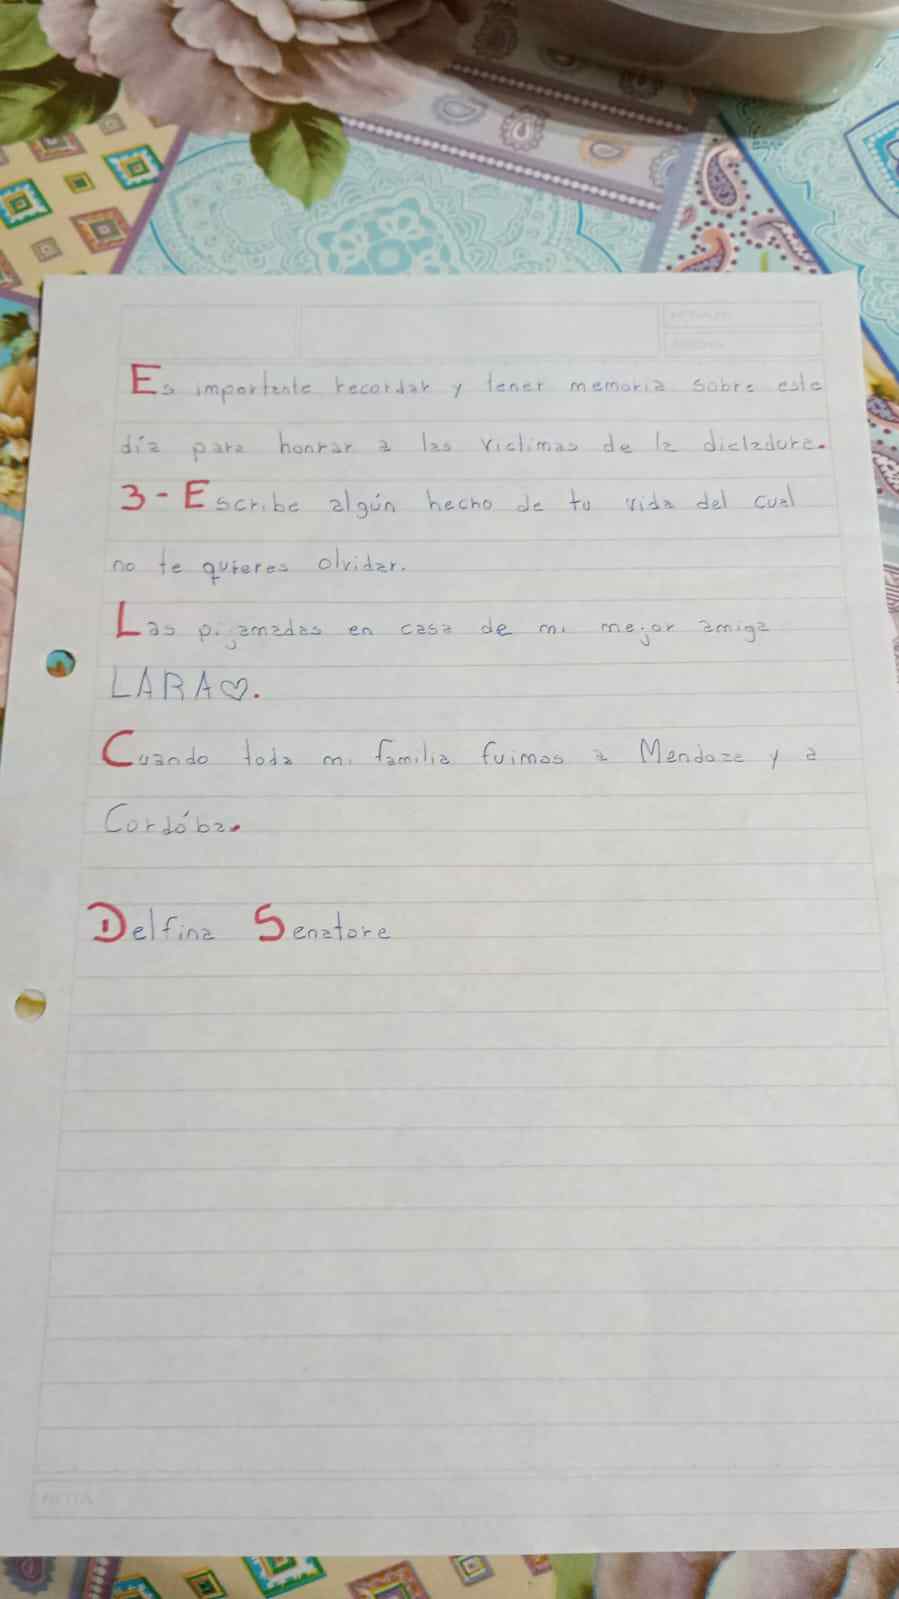 Es importante recordar y tener memoria sobre este
día para honrar a las victimas de la dictadura.
3- Escribe algún hecho de tu vida del cual
no te quieres olvidar.
Las pijamadas en casa de mi mejor amiga
LARA♡.
Cuando toda mi familia fuimos a Mendoza y a
Cordóba.
Delfina Senatore